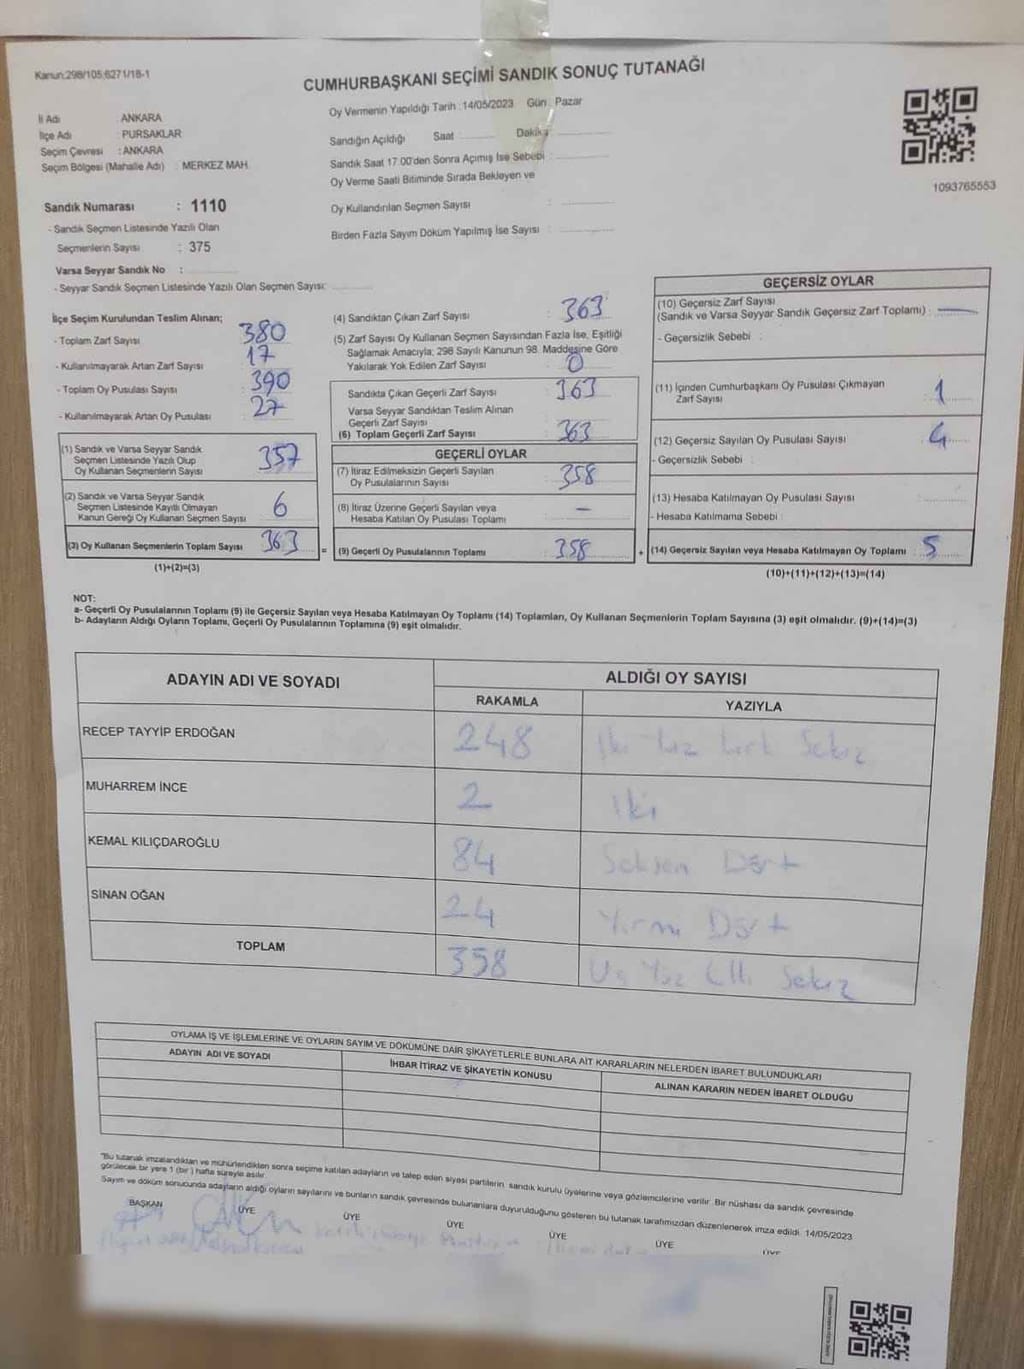 Kanun:298/105;6271/18-1
CUMHURBAŞKANI SEÇİMİ SANDIK SONUÇ TUTANAĞI
İl Adı : ANKARA
İlçe Adı : PURSAKLAR
Seçim Çevresi : ANKARA
Seçim Bölgesi (Mahalle Adı) : MERKEZ MAH.
Oy Vermenin Yapıldığı Tarih : 14/05/2023 Gün : Pazar
Sandığın Açıldığı Saat Dakika
Sandık Saat 17.00'den Sonra Açımış İse Sebebi :
Oy Verme Saati Bitiminde Sırada Bekleyen ve
Oy Kullandırılan Seçmen Sayısı :
Birden Fazla Sayım Döküm Yapılmış İse Sayısı :
1093765553
Sandık Numarası : 1110
- Sandık Seçmen Listesinde Yazılı Olan
Seçmenlerin Sayısı : 375
Varsa Seyyar Sandık No :
- Seyyar Sandık Seçmen Listesinde Yazılı Olan Seçmen Sayısı:
İlçe Seçim Kurulundan Teslim Alınan;
- Toplam Zarf Sayısı 380
- Kullanılmayarak Artan Zarf Sayısı 17
- Toplam Oy Pusulası Sayısı 390
- Kullanılmayarak Artan Oy Pusulası 27
(1) Sandık ve Varsa Seyyar Sandık
Seçmen Listesinde Yazılı Olup
Oy Kullanan Seçmenlerin Sayısı 357
(2) Sandık ve Varsa Seyyar Sandık
Seçmen Listesinde Kayıtlı Olmayan
Kanun Gereği Oy Kullanan Seçmen Sayısı 6
(3) Oy Kullanan Seçmenlerin Toplam Sayısı 363 =
(1)+(2)=(3)
(4) Sandıktan Çıkan Zarf Sayısı : 363
(5) Zarf Sayısı Oy Kullanan Seçmen Sayısından Fazla İse, Eşitliği
Sağlamak Amacıyla; 298 Sayılı Kanunun 98. Maddesine Göre
Yakılarak Yok Edilen Zarf Sayısı : 0
Sandıkta Çıkan Geçerli Zarf Sayısı : 363
Varsa Seyyar Sandıktan Teslim Alınan
Geçerli Zarf Sayısı
(6) Toplam Geçerli Zarf Sayısı : 363
GEÇERLİ OYLAR
(7) İtiraz Edilmeksizin Geçerli Sayılan
Oy Pusulalarının Sayısı : 358
(8) İtiraz Üzerine Geçerli Sayılan veya
Hesaba Katılan Oy Pusulası Toplamı : -
(9) Geçerli Oy Pusulalarının Toplamı : 358 +
GEÇERSİZ OYLAR
(10) Geçersiz Zarf Sayısı
(Sandık ve Varsa Seyyar Sandık Geçersiz Zarf Toplamı) : —
- Geçersizlik Sebebi :
(11) İçinden Cumhurbaşkanı Oy Pusulası Çıkmayan
Zarf Sayısı : 1
(12) Geçersiz Sayılan Oy Pusulası Sayısı : 4
- Geçersizlik Sebebi :
(13) Hesaba Katılmayan Oy Pusulası Sayısı :
- Hesaba Katılmama Sebebi :
(14) Geçersiz Sayılan veya Hesaba Katılmayan Oy Toplamı : 5
(10)+(11)+(12)+(13)=(14)
NOT:
a- Geçerli Oy Pusulalarının Toplamı (9) ile Geçersiz Sayılan veya Hesaba Katılmayan Oy Toplamı (14) Toplamları, Oy Kullanan Seçmenlerin Toplam Sayısına (3) eşit olmalıdır. (9)+(14)=(3)
b- Adayların Aldığı Oyların Toplamı, Geçerli Oy Pusulalarının Toplamına (9) eşit olmalıdır.
ADAYIN ADI VE SOYADI ALDIĞI OY SAYISI
RAKAMLA YAZIYLA
RECEP TAYYİP ERDOĞAN 248 İki Yüz Kırk Sekiz
MUHARREM İNCE 2 İki
KEMAL KILIÇDAROĞLU 84 Seksen Dört
SİNAN OĞAN 24 Yirmi Dört
TOPLAM 358 Üç Yüz Elli Sekiz
OYLAMA İŞ VE İŞLEMLERİNE VE OYLARIN SAYIM VE DÖKÜMÜNE DAİR ŞİKAYETLERLE BUNLARA AİT KARARLARIN NELERDEN İBARET BULUNDUKLARI
ADAYIN ADI VE SOYADI İHBAR İTİRAZ VE ŞİKAYETİN KONUSU ALINAN KARARIN NEDEN İBARET OLDUĞU
"Bu tutanak imzalandıktan ve mühürlendikten sonra seçime katılan adayların ve talep eden siyasi partilerin, sandık kurulu üyelerine veya gözlemcilerine verilir. Bir nüshası da sandık çevresinde
görülecek bir yere 1 (bir) hafta süreyle asılır.
Sayım ve döküm sonucunda adayların aldığı oyların sayılarını ve bunların sandık çevresinde bulunanlara duyurulduğunu gösteren bu tutanak tarafımızdan düzenlenerek imza edildi. 14/05/2023
BAŞKAN ÜYE ÜYE ÜYE ÜYE ÜYE ÜYE